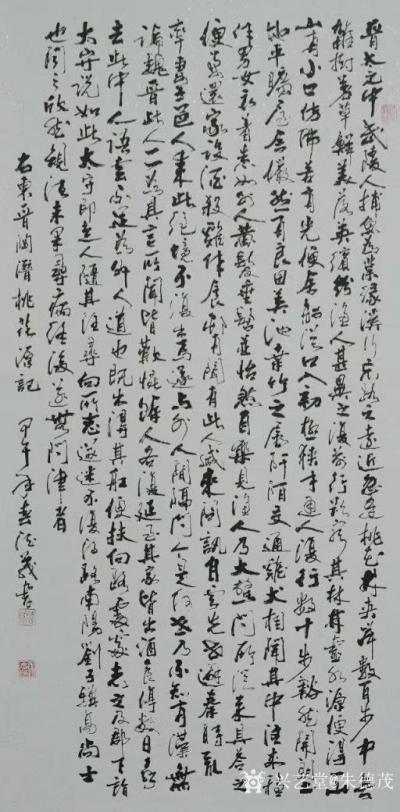 晉太元中武陵人捕魚為業緣溪行忘路之遠近忽逢桃花林夾岸數百步中無
雜樹芳草鮮美落英繽紛漁人甚異之復前行欲窮其林林盡水源便得一山
山有小口仿佛若有光便舍船從口入初極狹才通人復行數十步豁然開朗土
地平曠屋舍儼然有良田美池桑竹之屬阡陌交通雞犬相聞其中往來種
作男女衣着悉如外人黃髮垂髫並怡然自樂見漁人乃大驚問所從來具答之
便要還家設酒殺雞作食村中聞有此人咸來問訊自云先世避秦時亂
率妻子邑人來此絕境不復出焉遂與外人間隔問今是何世乃不知有漢無
論魏晉此人一一為具言所聞皆歎惋餘人各復延至其家皆出酒食停數日辭
去此中人語云不足為外人道也既出得其船便扶向路處處志之及郡下詣
太守說如此太守即遣人隨其往尋向所志遂迷不復得路南陽劉子驥高尚士
也聞之欣然規往未果尋病終後遂無問津者
右東晉陶潛桃花源記 甲午年春德茂書
兴艺堂@朱德茂